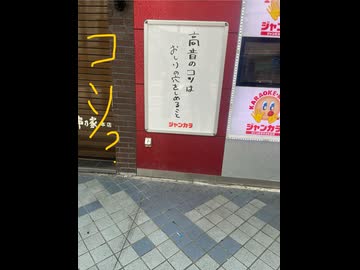 高音のコツは
おしりの穴をしめること
ジャンカラ
コソっ
ジャンカラ
KARAOKE
ジャンカラ